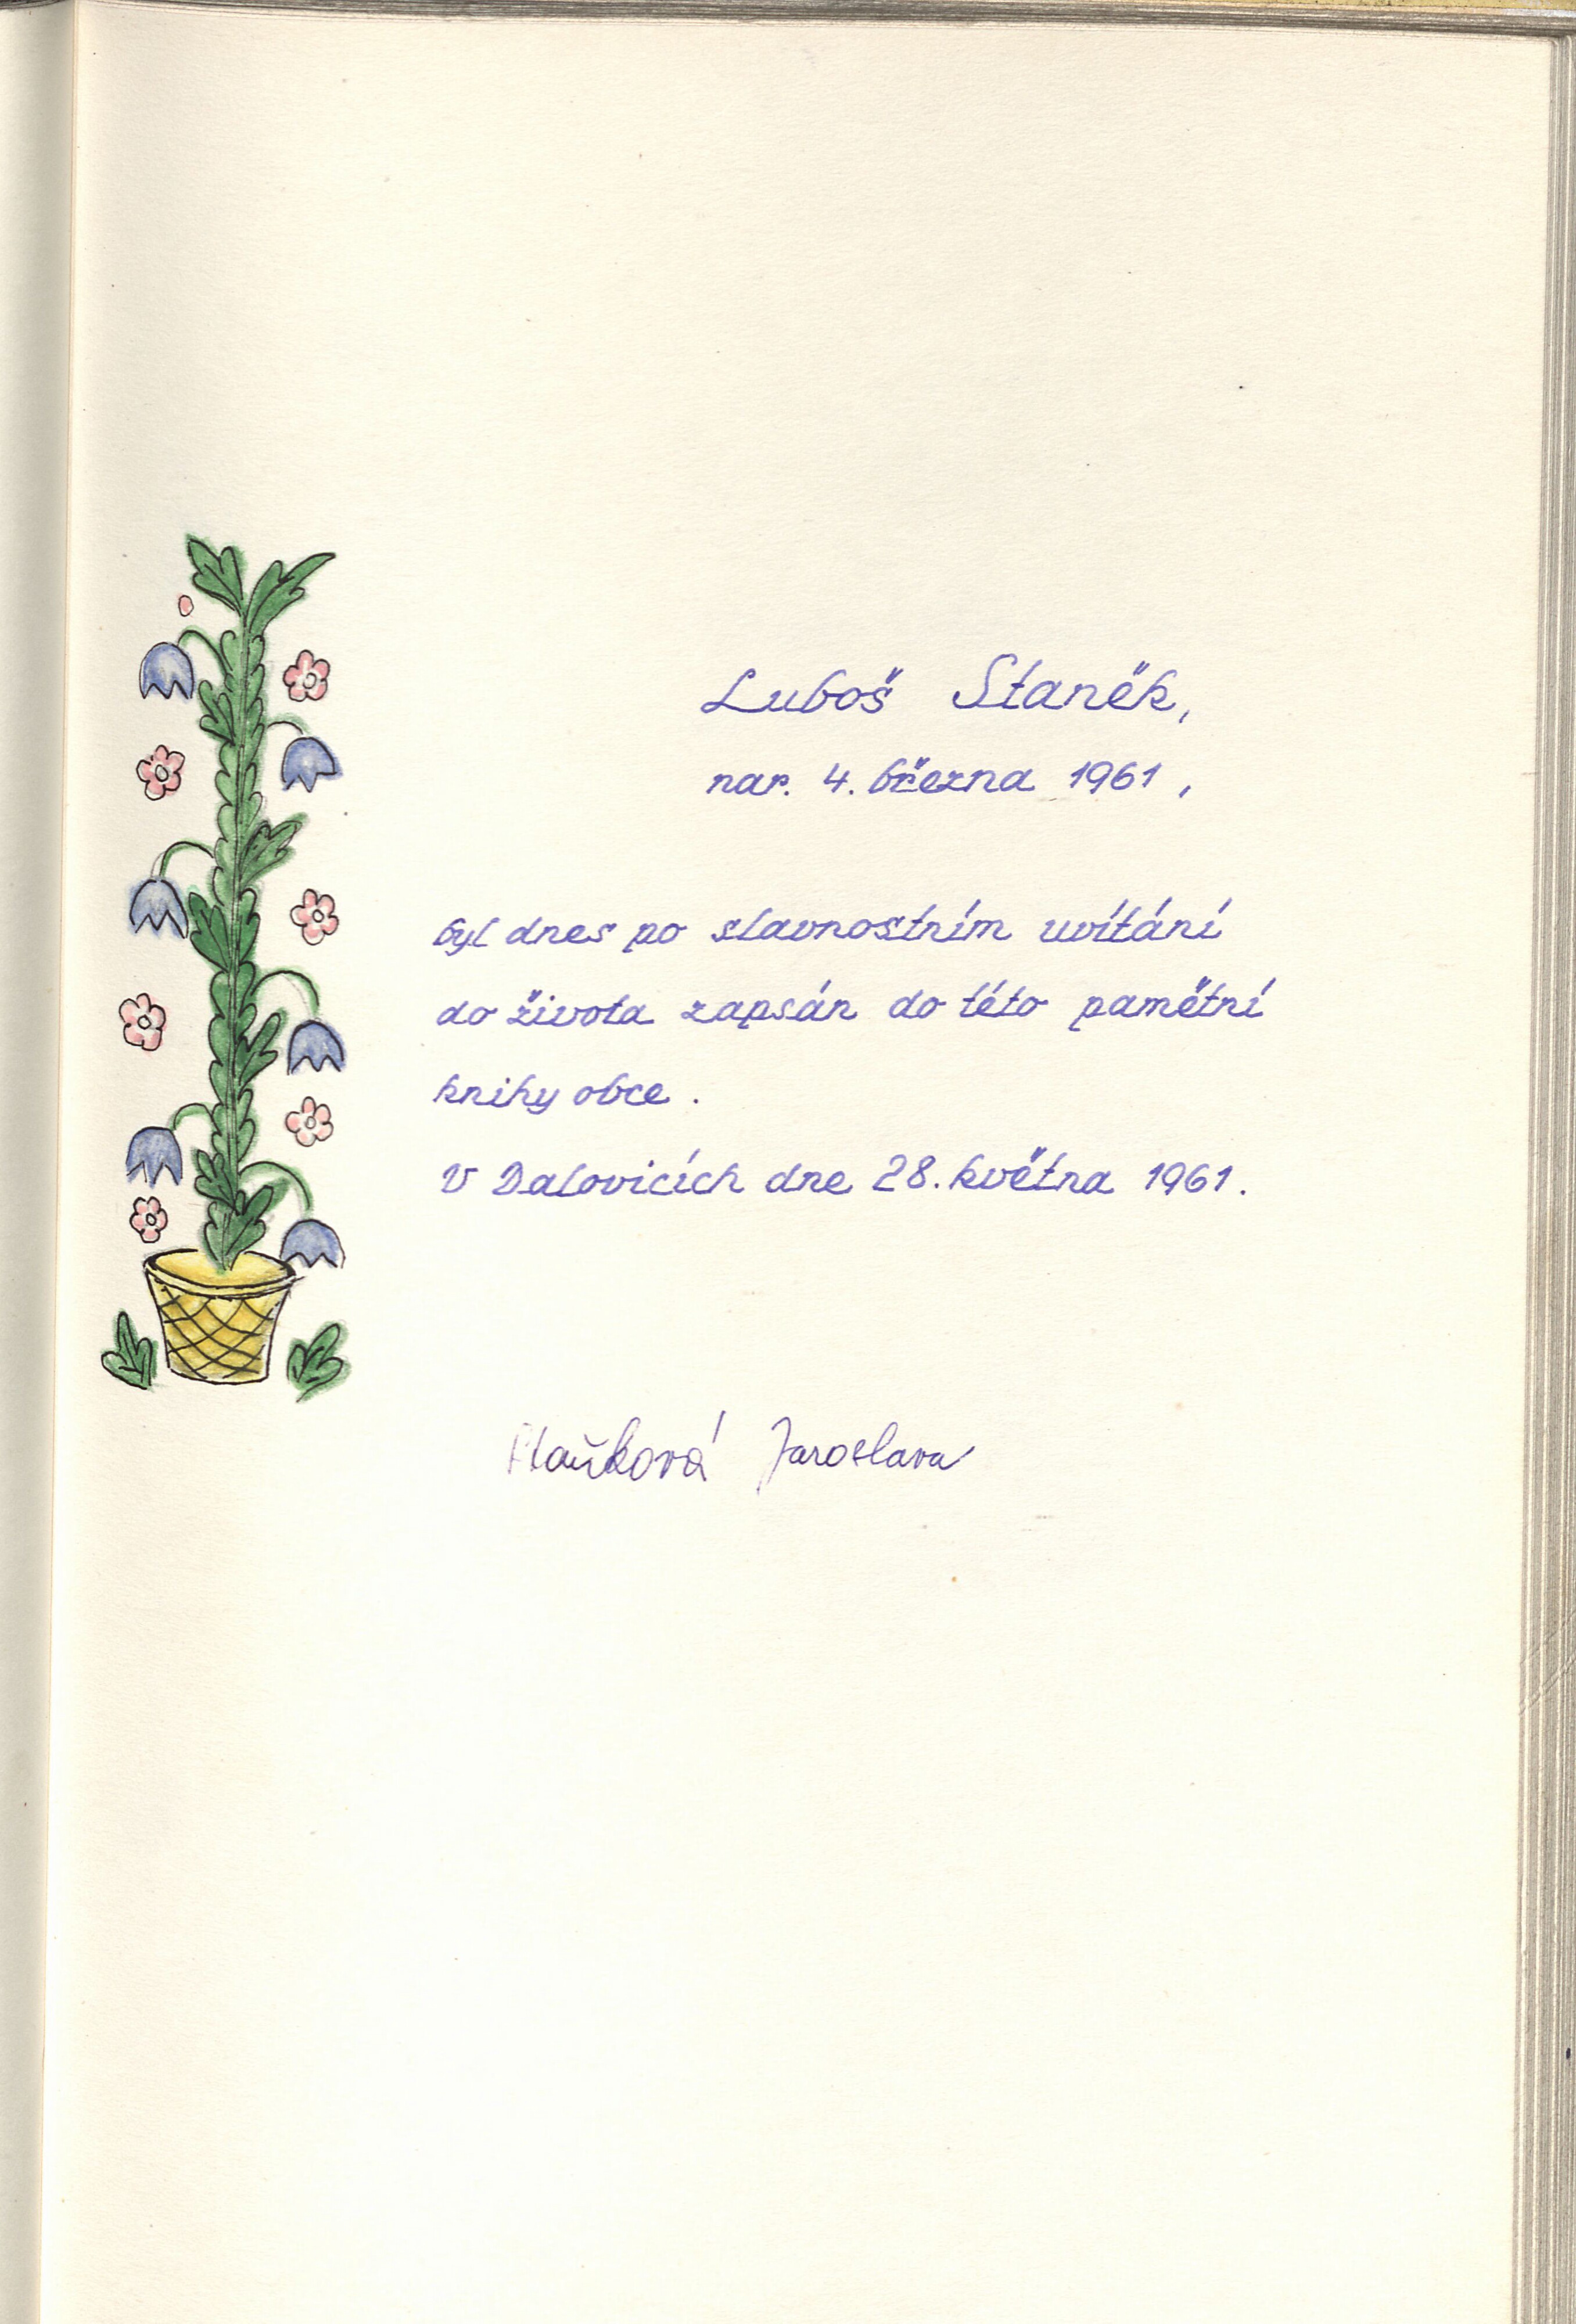 Luboš Staněk,
nar. 4. března 1961,
byl dnes po slavnostním uvítání
do života zapsán do této pamětní
knihy obce.
V Dalovicích dne 28. května 1961.
Jaroslava